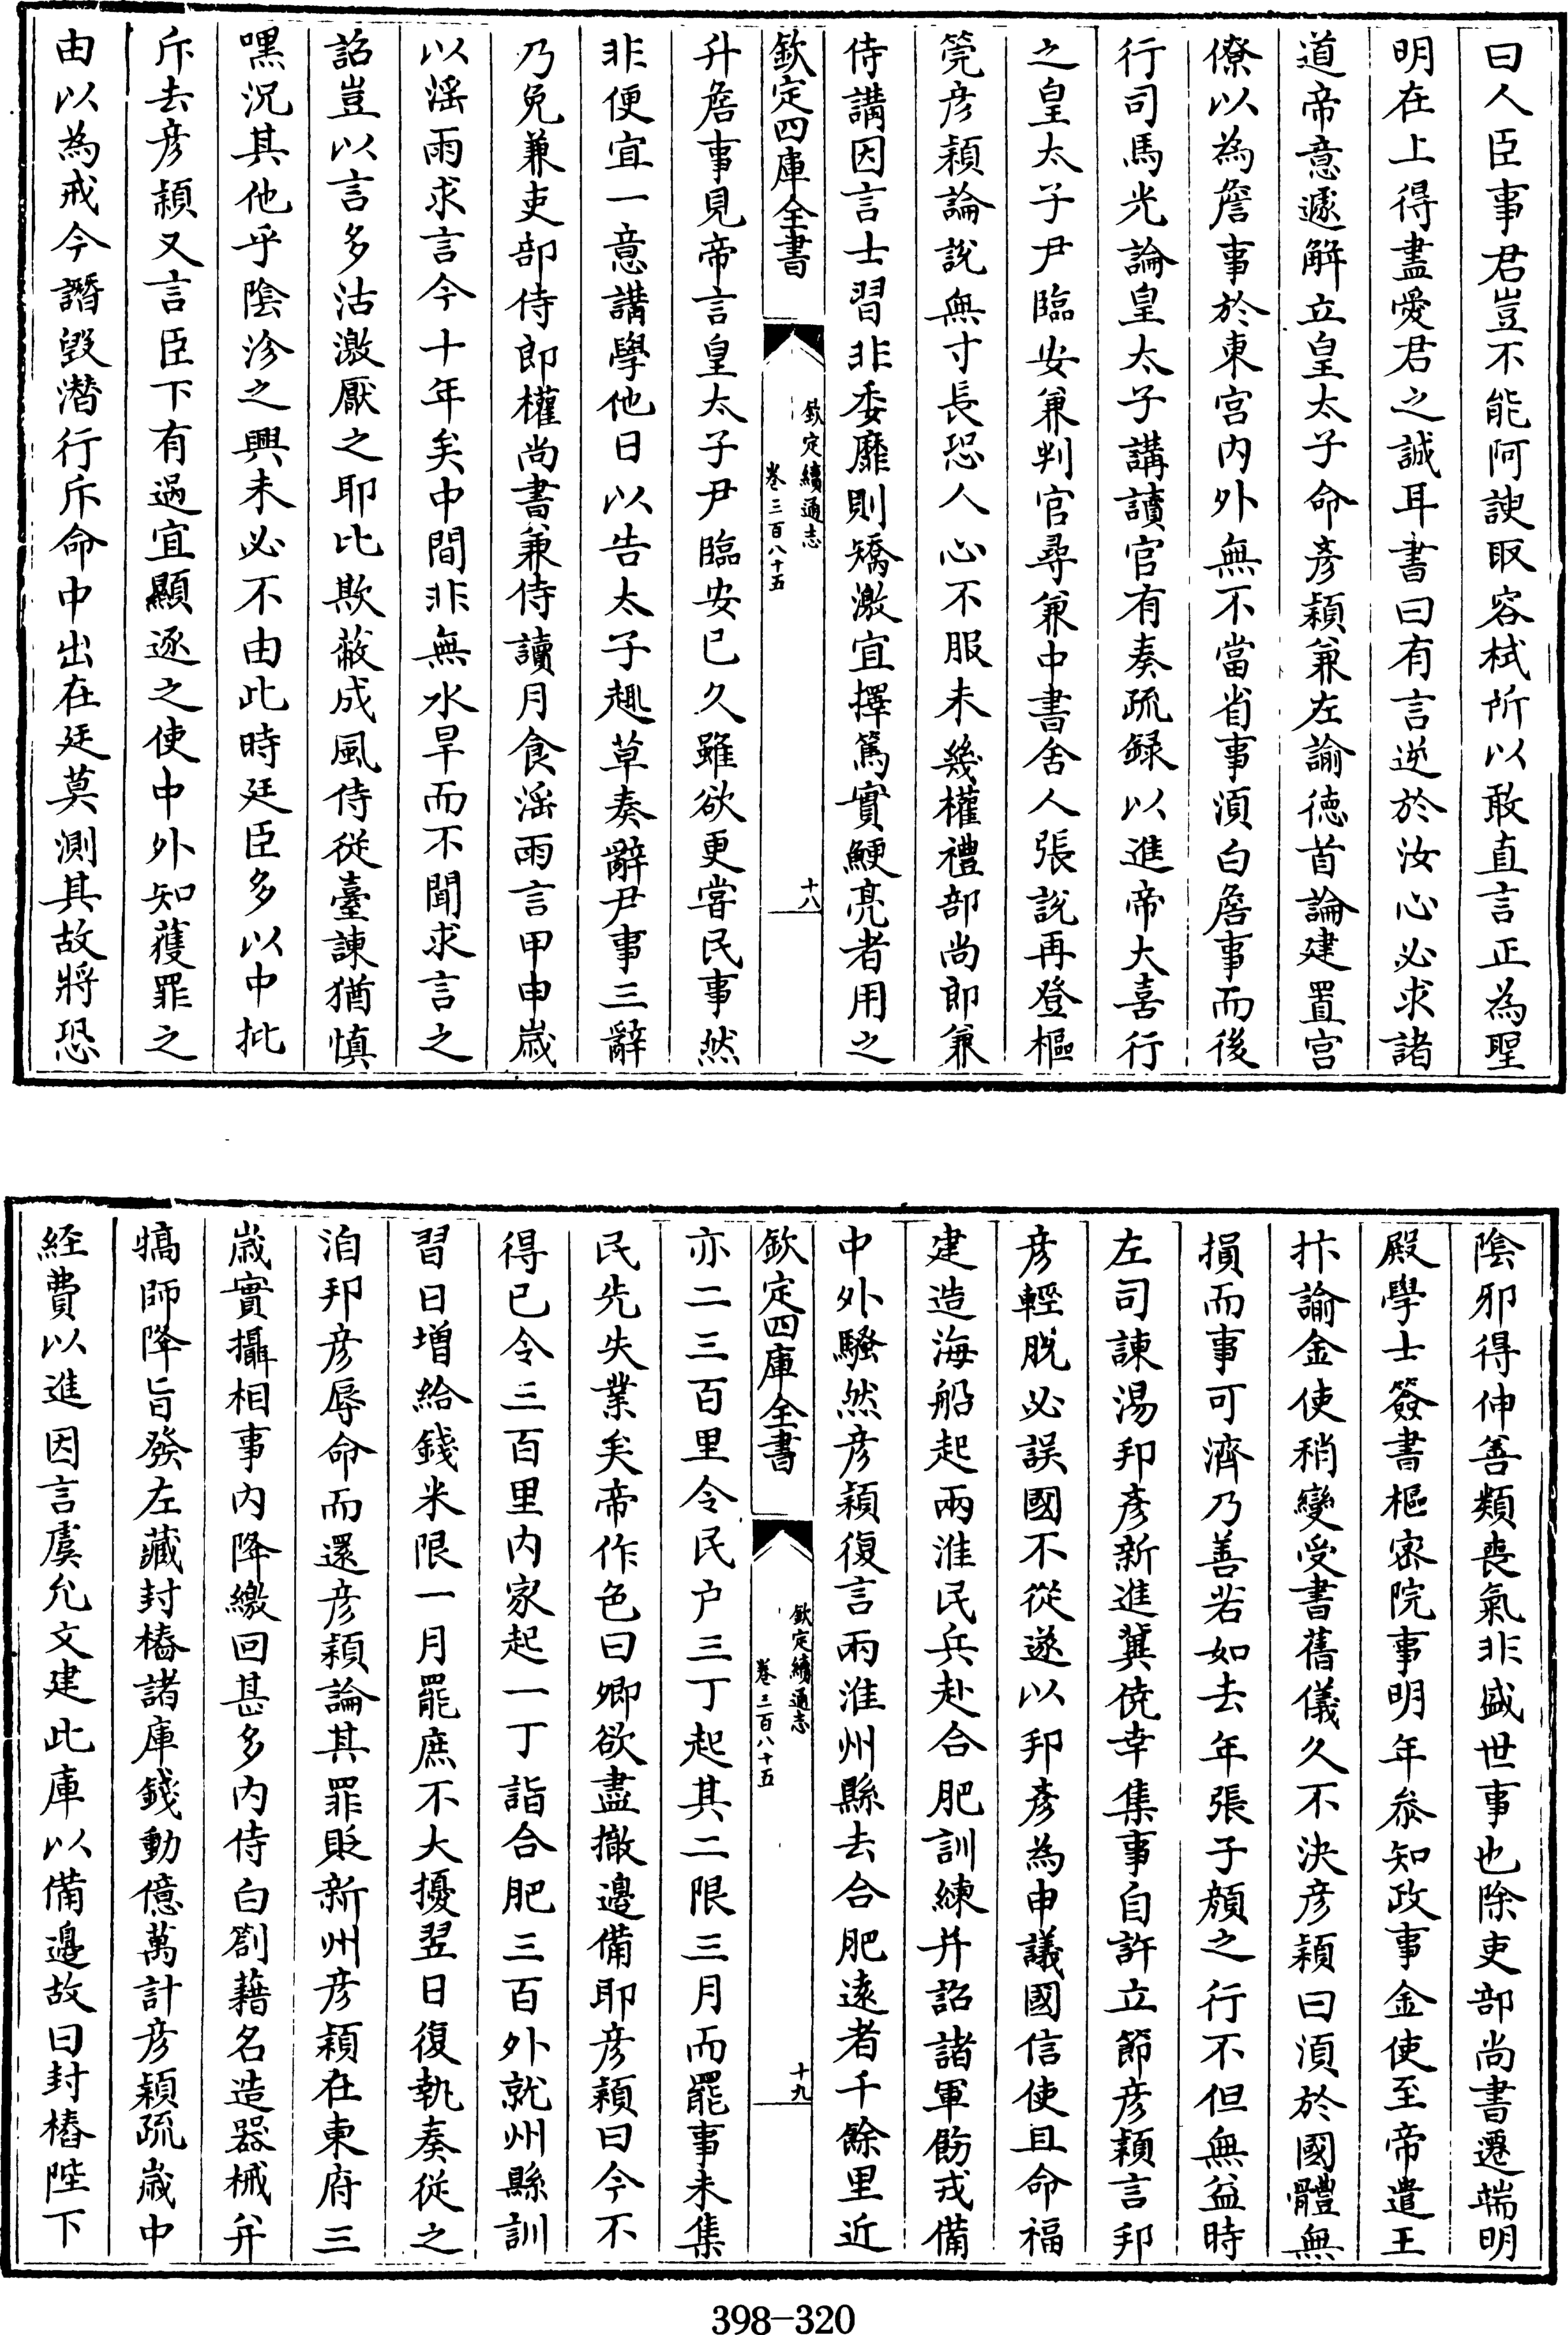 曰人臣事君豈不能阿諛取容栻所以敢直言正為聖
明在上得盡愛君之誠耳書曰有言逆於汝心必求諸
道帝意遽解立皇太子命彥穎兼左諭德首論建置宮
僚以為詹事於東宮內外無不當省事湏白詹事而後
行司馬光論皇太子講讀官有奏疏録以進帝大喜行
之皇太子尹臨安兼判官尋兼中書舍人張說再登樞
筦彥穎論說無寸長恐人心不服未幾權禮部尚郎兼
侍講因言士習非委靡則矯激宜擇篤實鯁亮者用之
欽定四庫全書
欽定續通志
卷三百八十五
十八
升詹事見帝言皇太子尹臨安已久雖欲更嘗民事然
非便宜一意講學他日以告太子趣草奏辭尹事三辭
乃免兼吏部侍郎權尚書兼侍讀月食淫雨言甲申嵗
以淫雨求言今十年矣中間非無水旱而不聞求言之
詔豈以言多沽激厭之耶比欺蔽成風侍從臺諫猶慎
嘿況其他乎陰沴之興未必不由此時廷臣多以中批
斥去彥穎又言臣下有過宜顯逐之使中外知獲罪之
由以為戒今譖毀潛行斥命中出在廷莫測其故將恐
陰邪得伸善類喪氣非盛世事也除吏部尚書遷端明
殿學士簽書樞密院事明年參知政事金使至帝遣王
抃諭金使稍變受書舊儀久不決彥穎曰湏於國體無
損而事可濟乃善若如去年張子顏之行不但無益時
左司諫湯邦彥新進冀僥幸集事自許立節彥穎言邦
彥輕脫必誤國不從遂以邦彥為申議國信使且命福
建造海船起兩淮民兵赴合肥訓練并詔諸軍飭戎備
中外騷然彥穎復言兩淮州縣去合肥遠者千餘里近
欽定四庫全書
欽定續通志
卷三百八十五
十九
亦二三百里令民户三丁起其二限三月而罷事未集
民先失業矣帝作色曰卿欲盡撤邊備耶彥穎曰今不
得已令三百里內家起一丁詣合肥三百外就州縣訓
習日增給錢米限一月罷庶不大擾翌日復執奏從之
洎邦彥辱命而還彥穎論其罪貶新州彥穎在東府三
嵗實攝相事內降繳回甚多內侍白劄藉名造器械并
犒師降旨發左藏封樁諸庫錢動億萬計彥穎疏嵗中
経費以進因言虞允文建此庫以備邊故曰封樁陛下
398-320